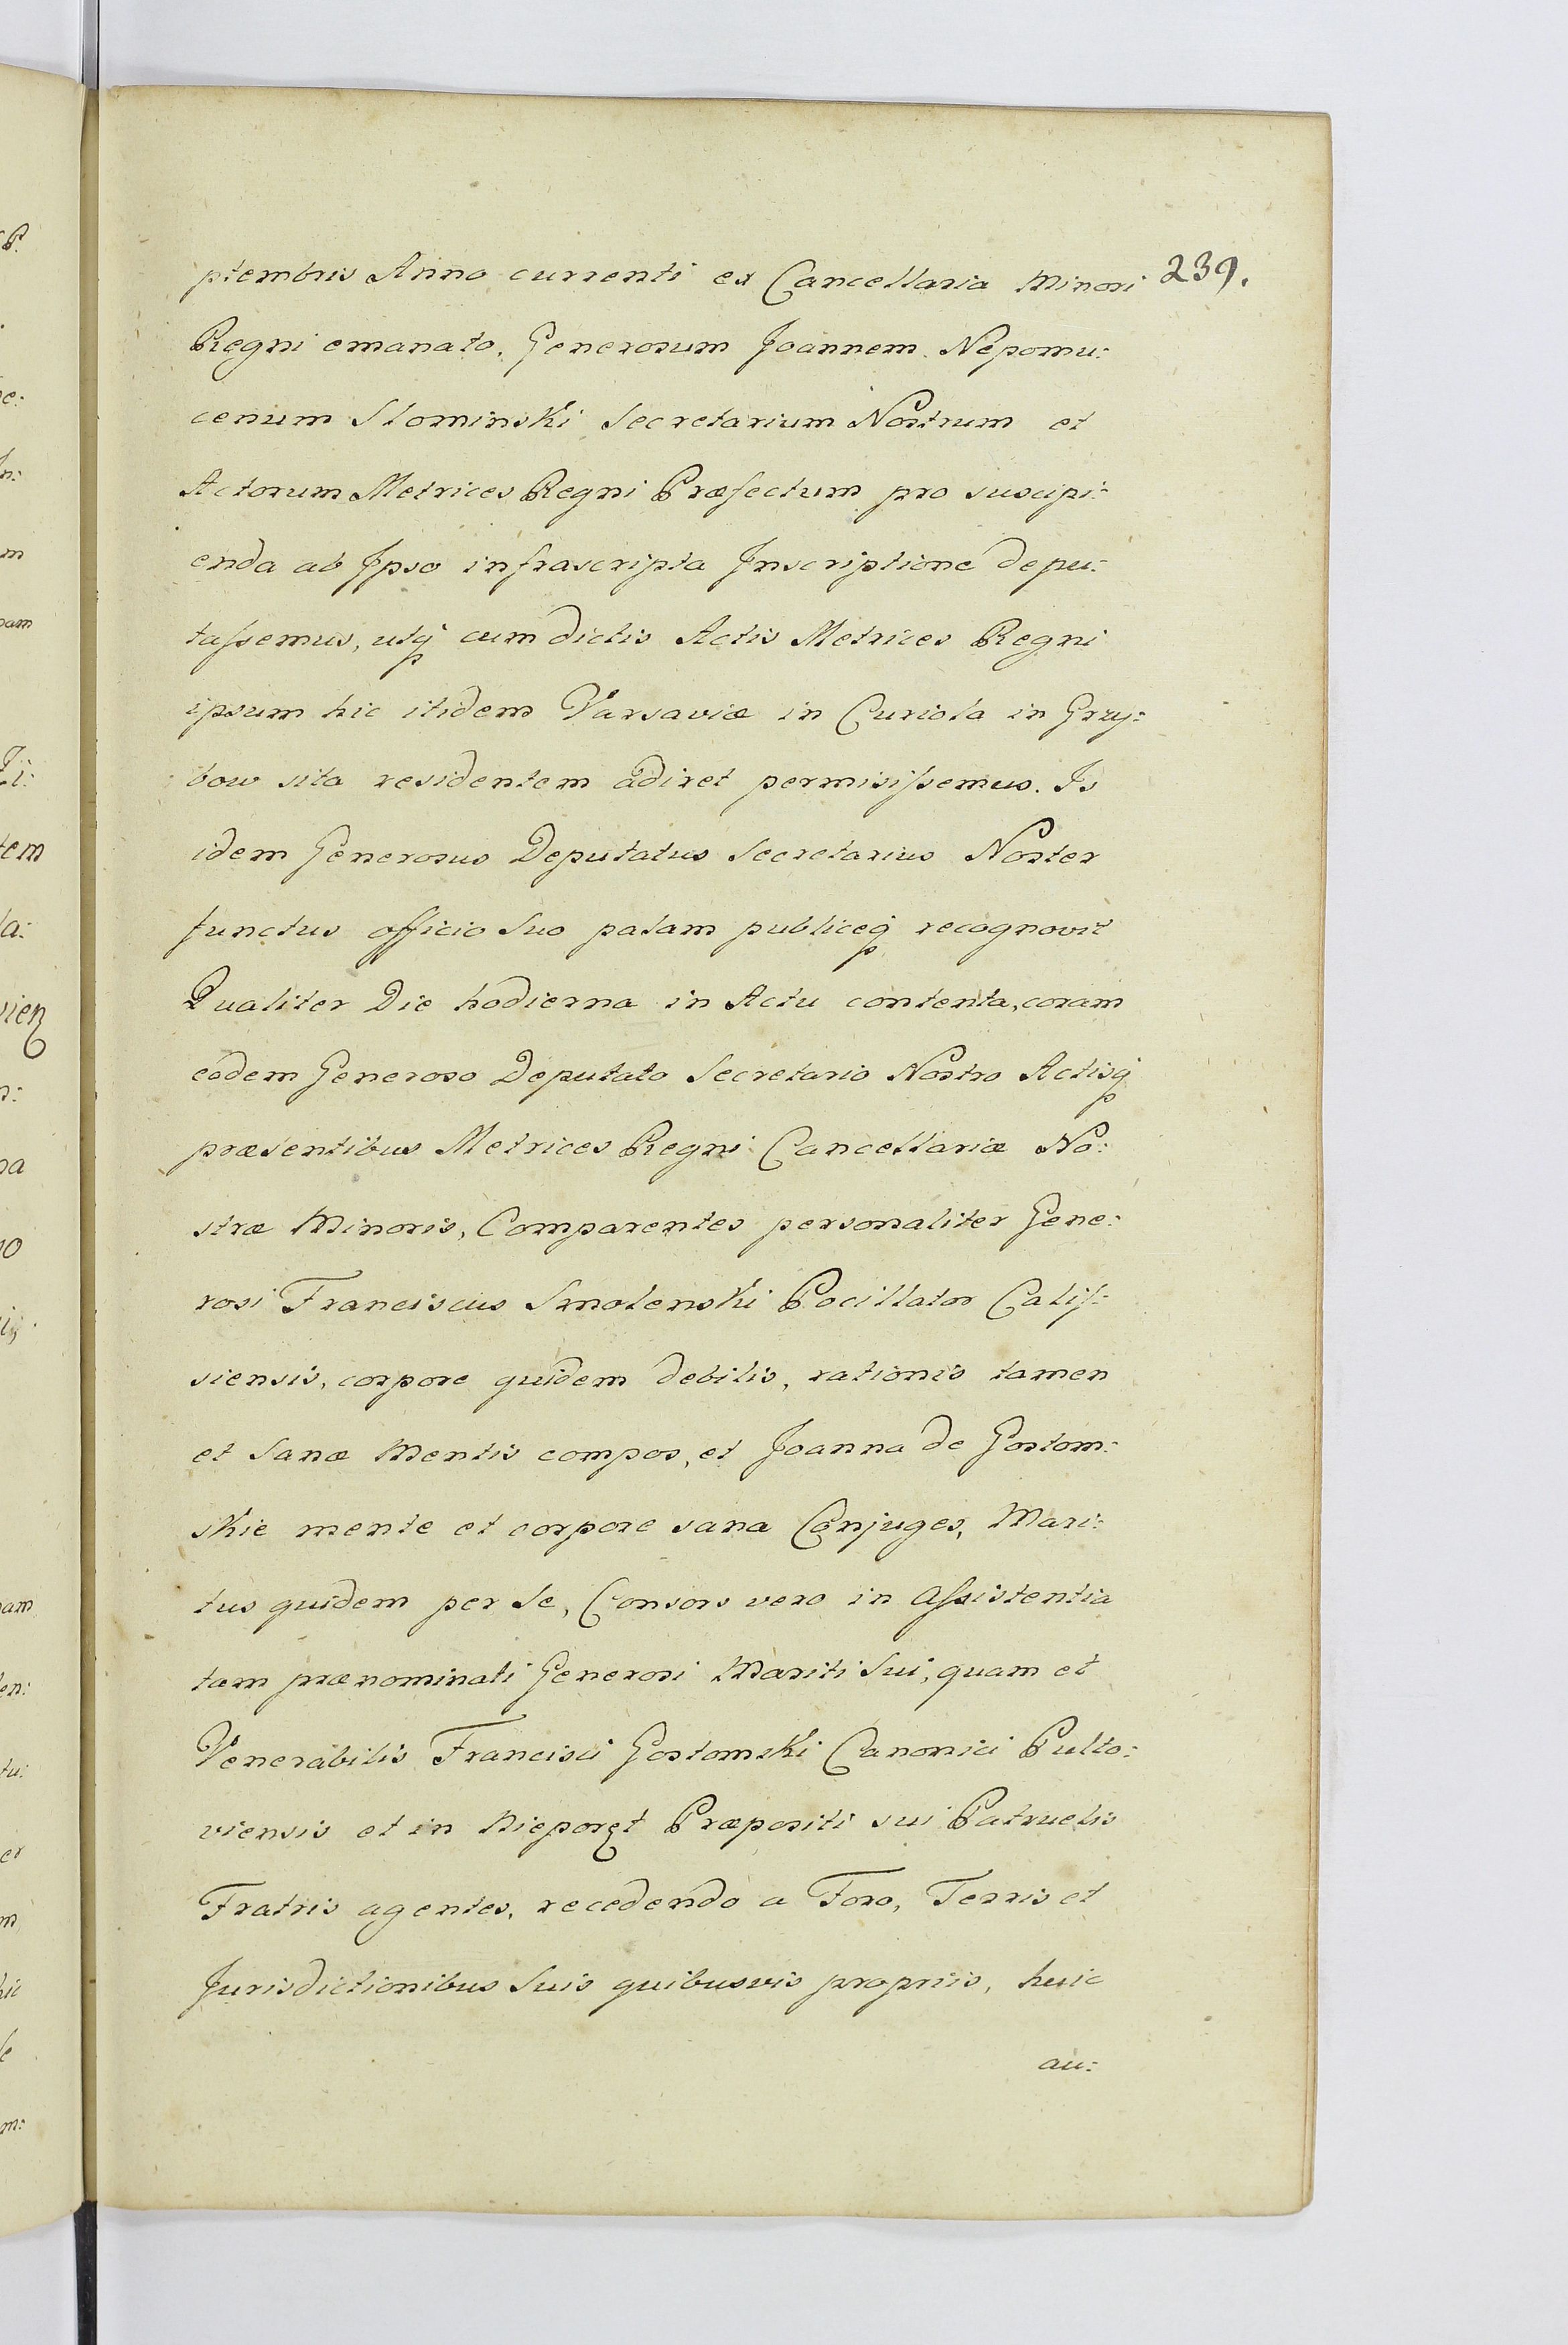 239.
ptembris Anno currenti ex Cancellaria Minori
Regni emanato, Generosum Joannem Nepomu:
cenum Slominski Secretarium Nostrum et
Actorum Metrices Regni Præfectum pro suscipi:
enda ab Ipso infrascripta Inscriptione depu:
taſsemus, utq cum dictis Actis Metrices Regni
ipsum hic itidem Varsaviæ in Curiola in Grzy:
bow sita residentem adiret permisiſsemus. Is
idem Generosus Deputatus Secretarius Noster
functus officio Suo palam publiceq recognovit
Qualiter Die hodierna in Actu contenta, coram
eodem Generoso Deputato Secretario Nostro Actisq
præsentibus Metrices Regni Cancellariæ No:
stræ Minoris, Comparentes personaliter Gene:
rosi Franciscus Smolenski Pocillator Caliſ:
siensis, corpore quidem debilis, rationis tamen
et Sanæ Mentis compos, et Joanna de Gostom:
skie mente et corpore sana Conjuges, Mari:
tus quidem per Se, Consors vero in Aſsistentia
tam prænominati Generosi Mariti Sui, quam et
Venerabilis Francisci Gostomski Canonici Pulto:
viensis et in Nieporęt Præpositi sui Patruelis
Fratris agentes, recedendo a Foro, Terris et
Jurisdictionibus Suis quibusvis propriis, huic
au: